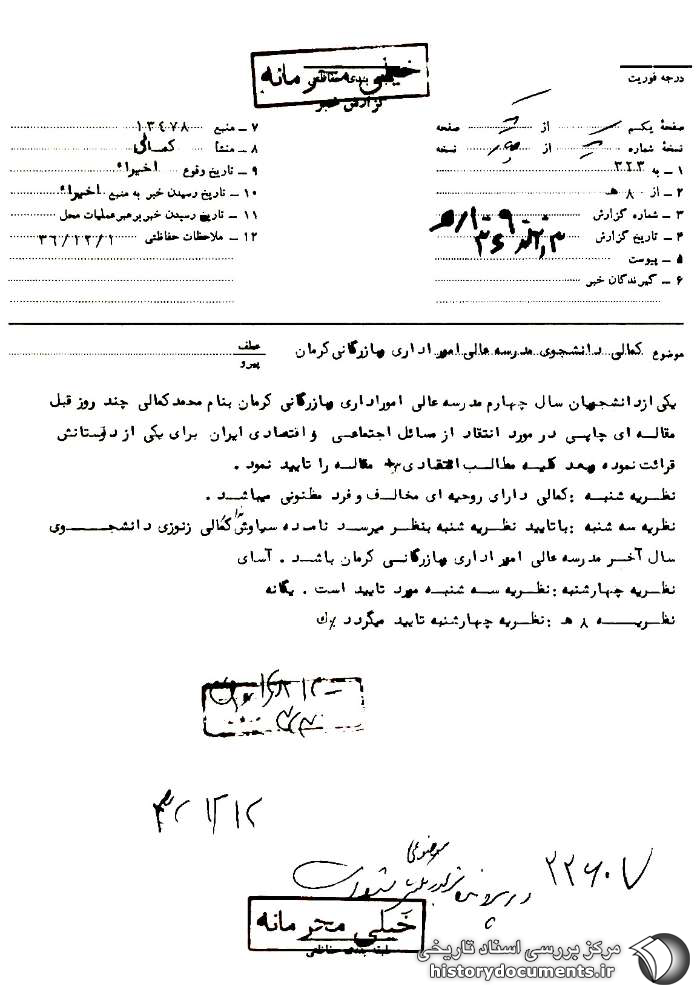 خیلی محرمانه
طبقه‌بندی حفاظتی
گزارش خبر
درجه فوریت
صفحهٔ یکم از صفحه
نسخهٔ شماره از نسخه
۱ ـ به ۳۲۳
۲ ـ از ۸ هـ
۳ ـ شماره گزارش
۴ ـ تاریخ گزارش
۵ ـ پیوست
۶ ـ گیرندگان خبر
۷ ـ منبع ۱۳۴۷۸
۸ ـ منشأ کمالی
۹ ـ تاریخ وقوع اخیراً
۱۰ ـ تاریخ رسیدن خبر به منبع اخیراً
۱۱ ـ تاریخ رسیدن خبر برهبر عملیات محل
۱۲ ـ ملاحظات حفاظتی ۳۶/۱۲/۱
موضوع کمالی دانشجوی مدرسه عالی امور اداری وبازرگانی کرمان
عطف
پیرو
یکی ازدانشجویان سال چهارم مدرسه عالی اموراداری وبازرگانی کرمان بنام محمدکمالی چند روز قبل
مقاله ای چاپی در مورد انتقاد از مسائل اجتماعی و اقتصادی ایران برای یکی از دوستانش
قرائت نموده وبعد کلیه مطالب انتقادی مقاله را تایید نمود .
نظریه شنبه : کمالی دارای روحیه ای مخالف و فرد مظنونی میباشد .
نظریه سه شنبه : باتایید نظریه شنبه بنظر میرسد نامبرده سیاوش کمالی زنوزی دانشجوی
سال آخر مدرسه عالی امور اداری وبازرگانی کرمان باشد . آسای
نظریه چهارشنبه : نظریه سه شنبه مورد تایید است . یگانه
نظریه ۸ هـ : نظریه چهارشنبه تایید میگردد
۲۲۶۰۷
خیلی محرمانه
طبقه بندی حفاظتی
مرکز بررسی اسناد تاریخی
historydocuments.ir